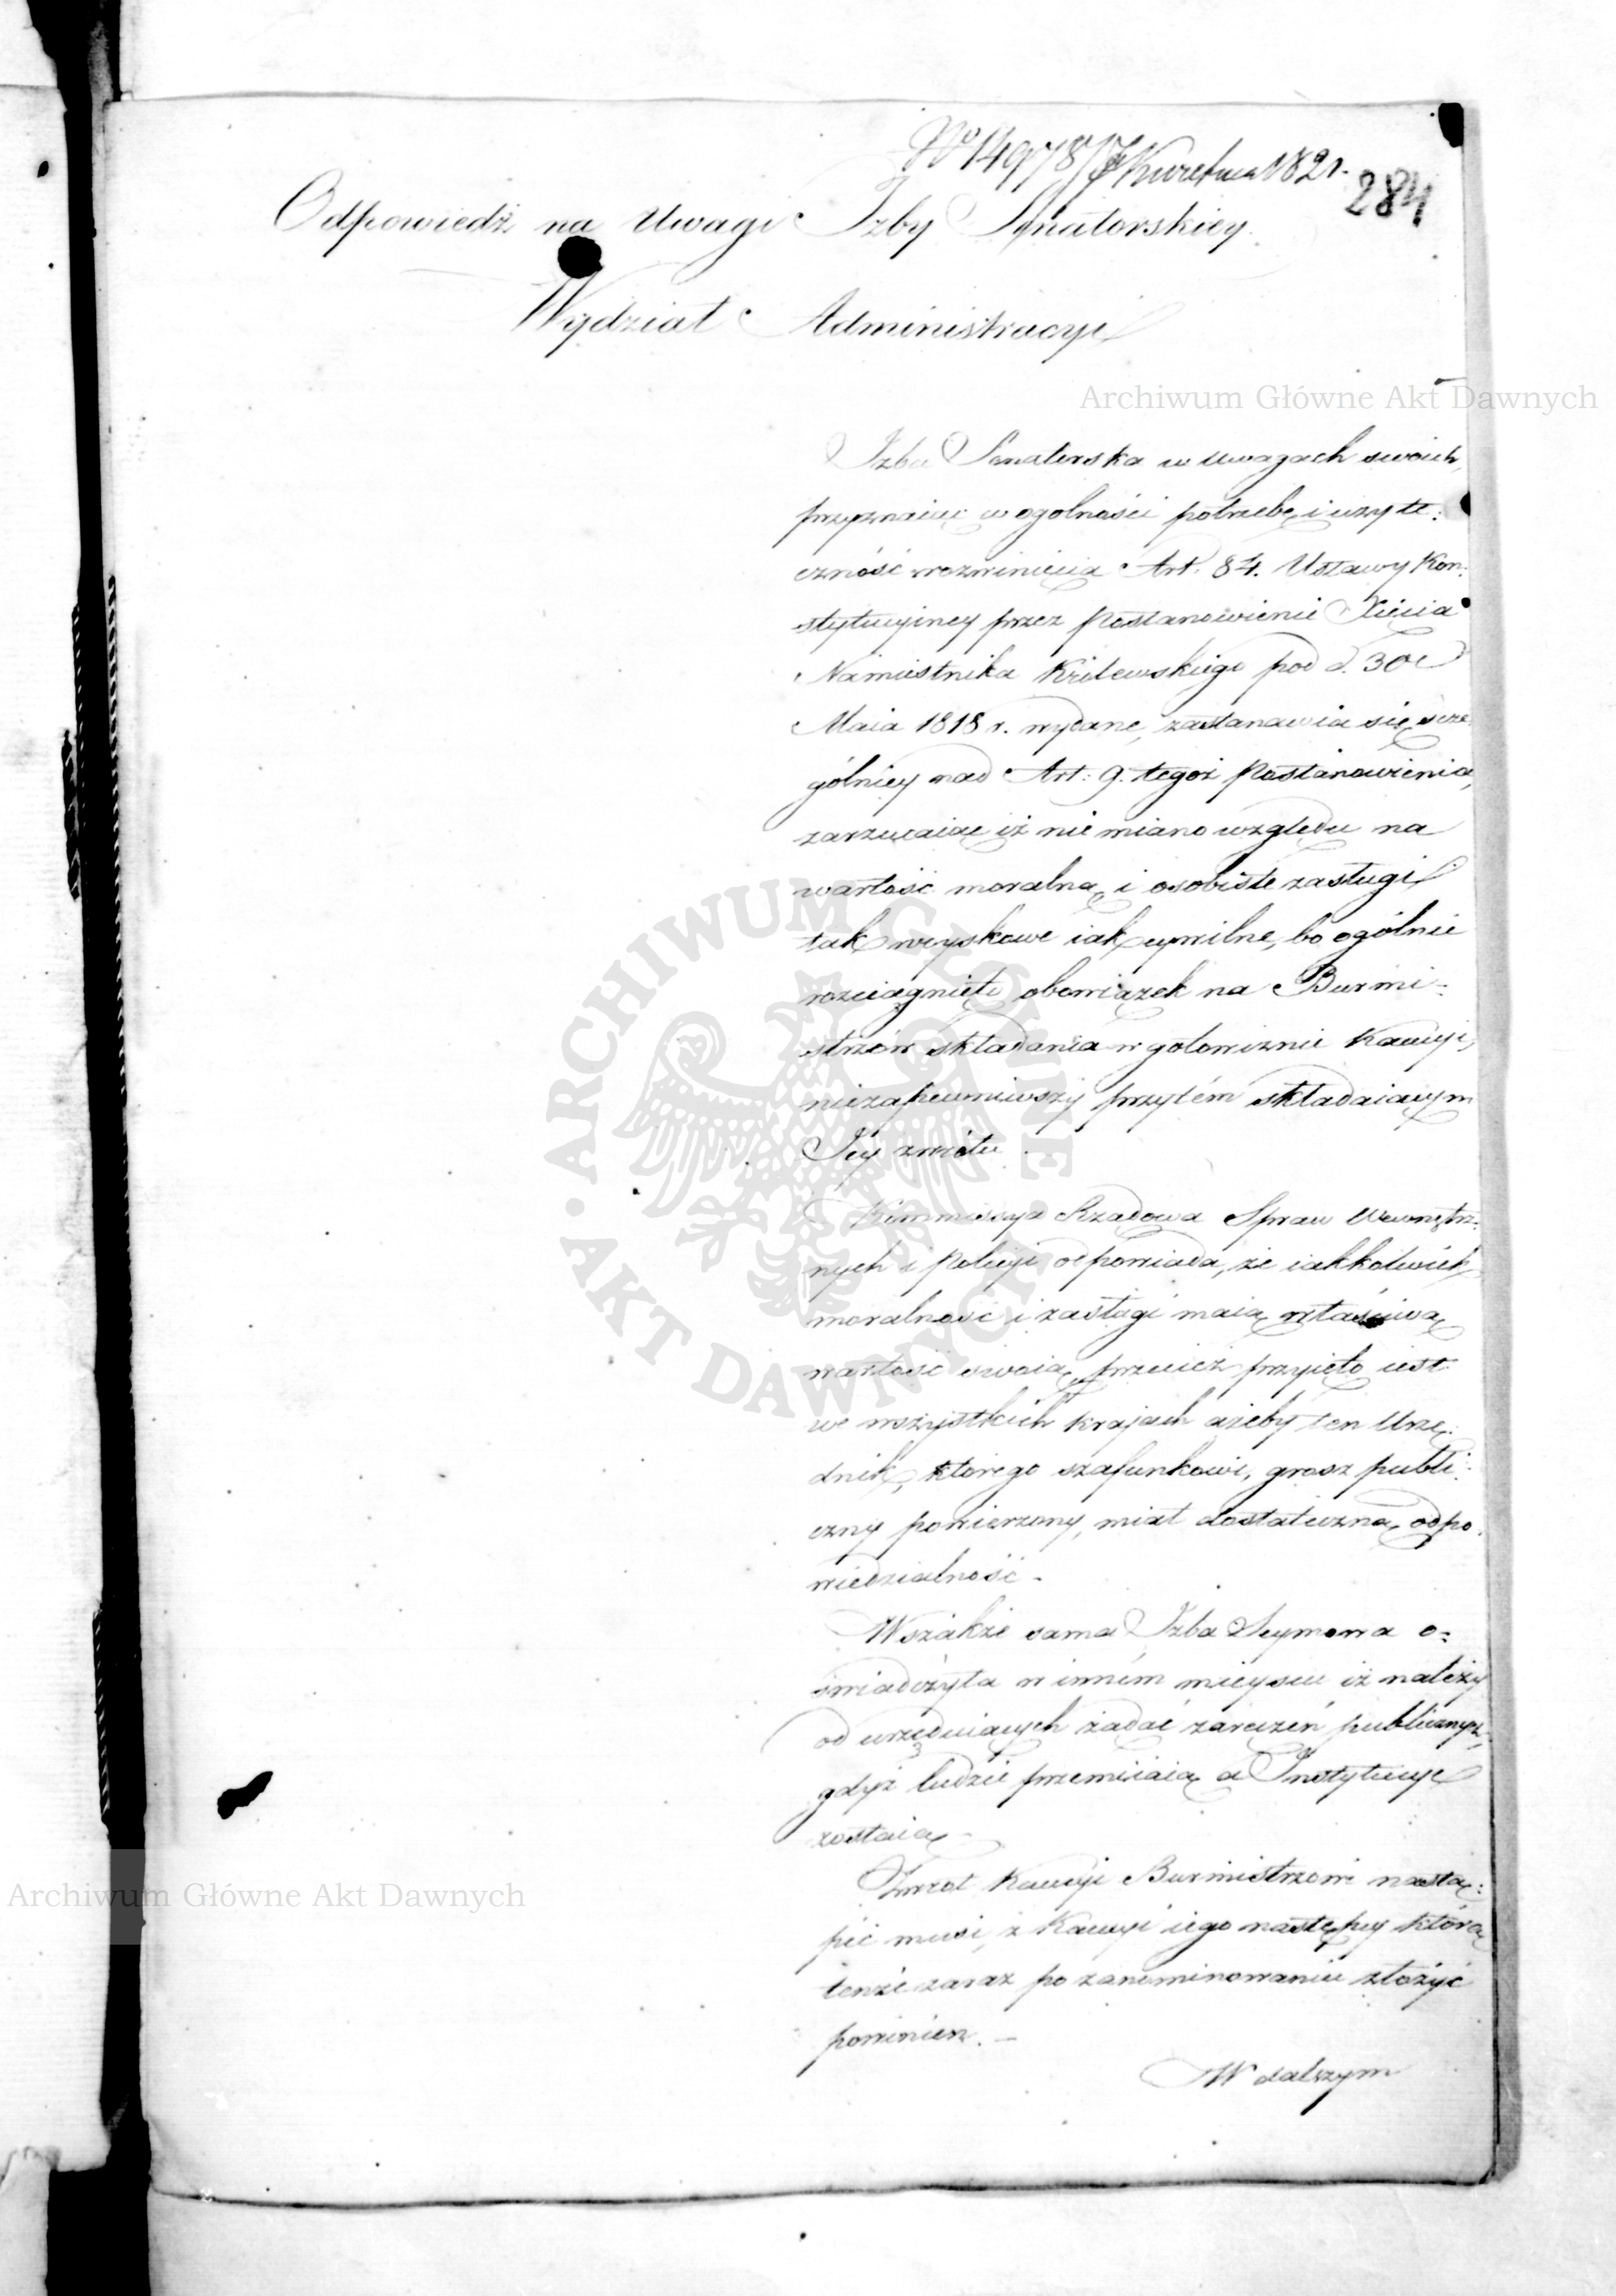 No 14978/7 Kwietnia 1821.
284
Odpowiedź na Uwagi Izby Senatorskiey.
Wydział Administracyi
Archiwum Główne Akt Dawnych
Izba Senatorska w uwagach swoich,
przyznaiąc w ogolności potrzebę i uzyte:
czność rozwinięcia Art. 84. Ustawy Kon:
stytucyiney przez Postanowienie Xięcia
Namiestnika Królewskiego pod d. 30
Maia 1818 r. wydane, zastanawia się szcze
gólniey nad Art: 9. tegoż Postanowienia,
zarzucaiąc iż nie miano względu na
wartość moralną i osobiste zasługi
tak woyskowe iak cywilne, bo ogólnie
rozciągnięto obowiązek na Burmi:
strzów składania w gotowiznie Kaucyi,
niezapewniwszy przytém składaiącym
Jey zwrotu.
Kommissya Rządowa Spraw Wewnętrz:
nych i Policyi odpowiada, że iakkolwiek
moralność i zasługi maią właściwą
wartość swoią, przecież przyięto iest
we wszystkich krajach ażeby ten Urzę:
dnik, którego szafunkowi, grosz publi:
czny powierzony, miał dostateczną odpo:
wiedzialność.
Wszakże sama Izba Seymowa o:
świadczyła w inném mieyscu iż należy
od urzęduiących żądać zaręczeń publicznych,
gdyż ludzie przemiiaią a Instytucye
zostaią
Zwrot Kaucyi Burmistrzowi nastą:
pić musi, z Kaucyi iego następcy którą
tenże zaraz po zanominowaniu złożyć
powinien. —
W dalszym
ARCHIWUM GŁÓWNE · AKT DAWNYCH ·
Archiwum Główne Akt Dawnych